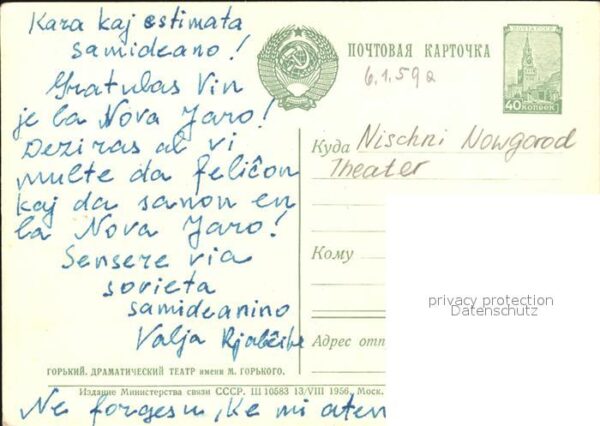 Kara kaj estimata
samideano!
Gratulas Vin
je la Nova Jaro!
Deziras al vi
multe da feliĉon
kaj da sanon en
la Nova Jaro!
Sensere via
sovieta
samideanino
Valja
ГОРЬКИЙ. ДРАМАТИЧЕСКИЙ ТЕАТР ИМЕНИ М. ГОРЬКОГО.
Издание Министерства связи СССР. Ш 10583 13/VIII 1956, Моск.
Ne forgesu, ke mi aten
ПОЧТОВАЯ КАРТОЧКА
6.1.59
ПОЧТА СССР
40 КОПЕЕК
Куда Nischni Nowgorod
Theater
Кому
Адрес отп
privacy protection
Datenschutz